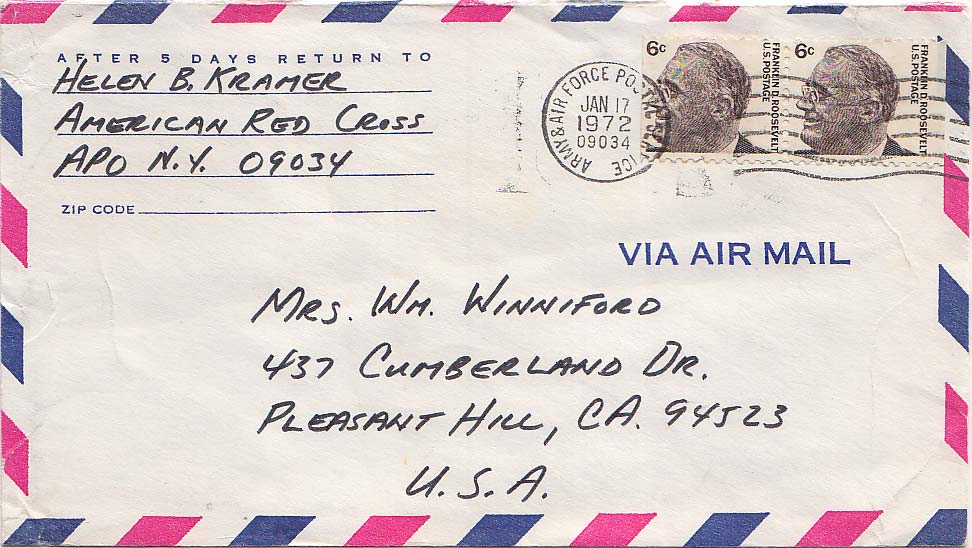 AFTER 5 DAYS RETURN TO
HELEN B. KRAMER
AMERICAN RED CROSS
APO N.Y. 09034
ZIP CODE
ARMY & AIR FORCE POSTAL SERVICE
JAN 17
1972
09034
6c
FRANKLIN D. ROOSEVELT
U.S. POSTAGE
6c
FRANKLIN D. ROOSEVELT
U.S. POSTAGE
VIA AIR MAIL
MRS. WM. WINNIFORD
437 CUMBERLAND DR.
PLEASANT HILL, CA. 94523
U.S.A.